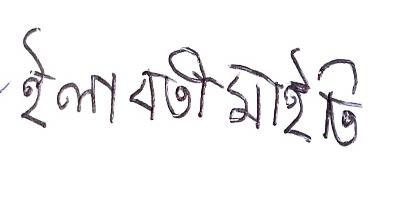 ইলা বতী মাইতি